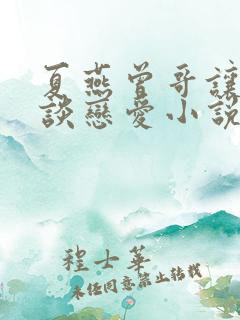 夏燕曾哥讓
談戀愛小說
程士華
未任同意禁止轉載